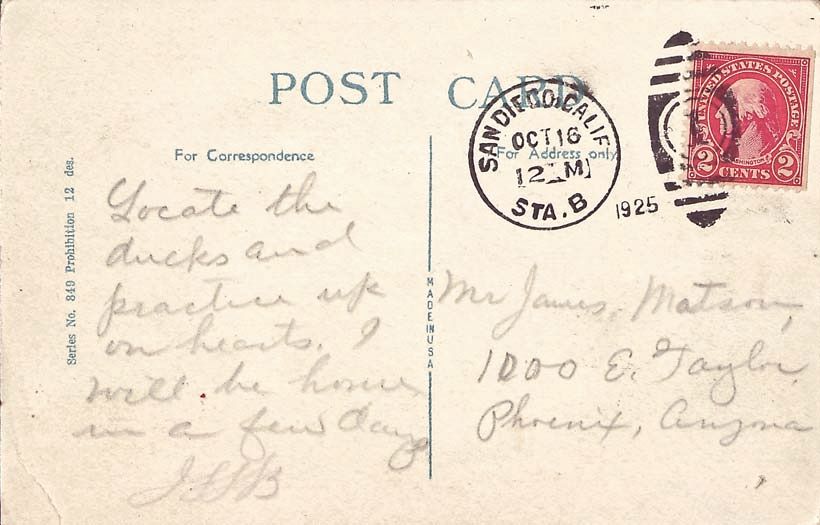 POST CARD
For Correspondence
For Address only
SAN DIEGO, CALIF
OCT 16
12 M
STA. B
1925
UNITED STATES POSTAGE
WASHINGTON
2 CENTS 2
Series No. 849 Prohibition 12 des.
MADE IN USA
Locate the
ducks and
practice up
on hearts. I
will be home
in a few days
Mr James Matson,
1000 E. Taylor
Phoenix, Arizona